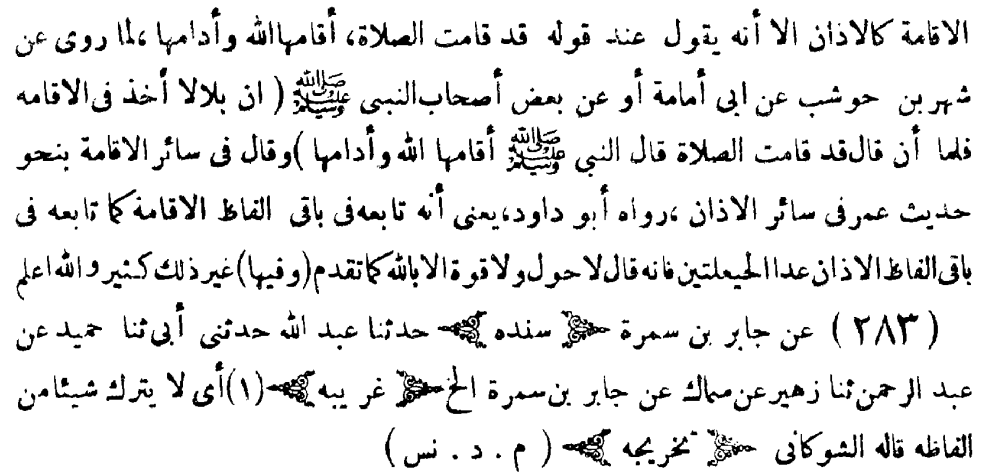 الاقامة كالاذان الا أنه يقول عند قوله قد قامت الصلاة، أقامها الله وأدامها ،لما روى عن
شهر بن حوشب عن ابى أمامة أو عن بعض أصحاب النبى ﷺ ( ان بلالا أخذ فى الاقامه
فلما أن قال قد قامت الصلاة قال النبي ﷺ أقامها الله وأدامها )وقال فى سائر الاقامة بنحو
حديث عمر فى سائر الاذان ،رواه أبو داود،يعنى أنه تابعه فى باقى الفاظ الاقامة كما تابعه فى
باقى الفاظ الاذان عدا الحيعلتين فانه قال لا حول ولا قوة الا بالله كما تقدم (وفيها) غير ذلك كثير والله اعلم
( ٢٨٣ ) عن جابر بن سمرة سنده حدثنا عبد الله حدثنى أبى ثنا حميد عن
عبد الرحمن ثنا زهير عن سماك عن جابر بن سمرة الخ غريبه (١) أى لا يترك شيئا من
الفاظه قاله الشوكانى تخريجه ( م . د . نس )